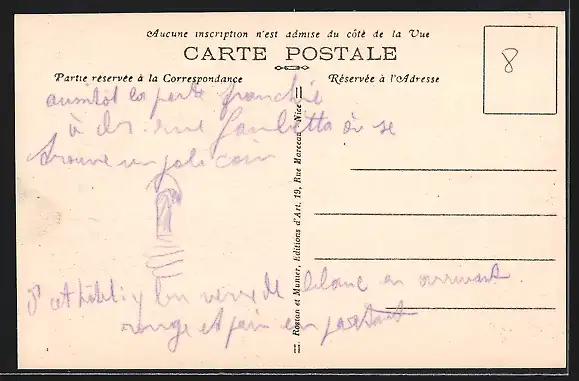 Aucune inscription n'est admise du côté de la Vue
CARTE POSTALE
Partie réservée à la Correspondance
Réservée à l'Adresse
8
aussitot la porte franchie
à dr. rue Gambetta où se
trouve un joli coin
Rostan et Munier, Editions d'Art, 19, Rue Marceau, Nice
cet hôtel: y bu verre de blanc en arrivant
rouge et fin en partant